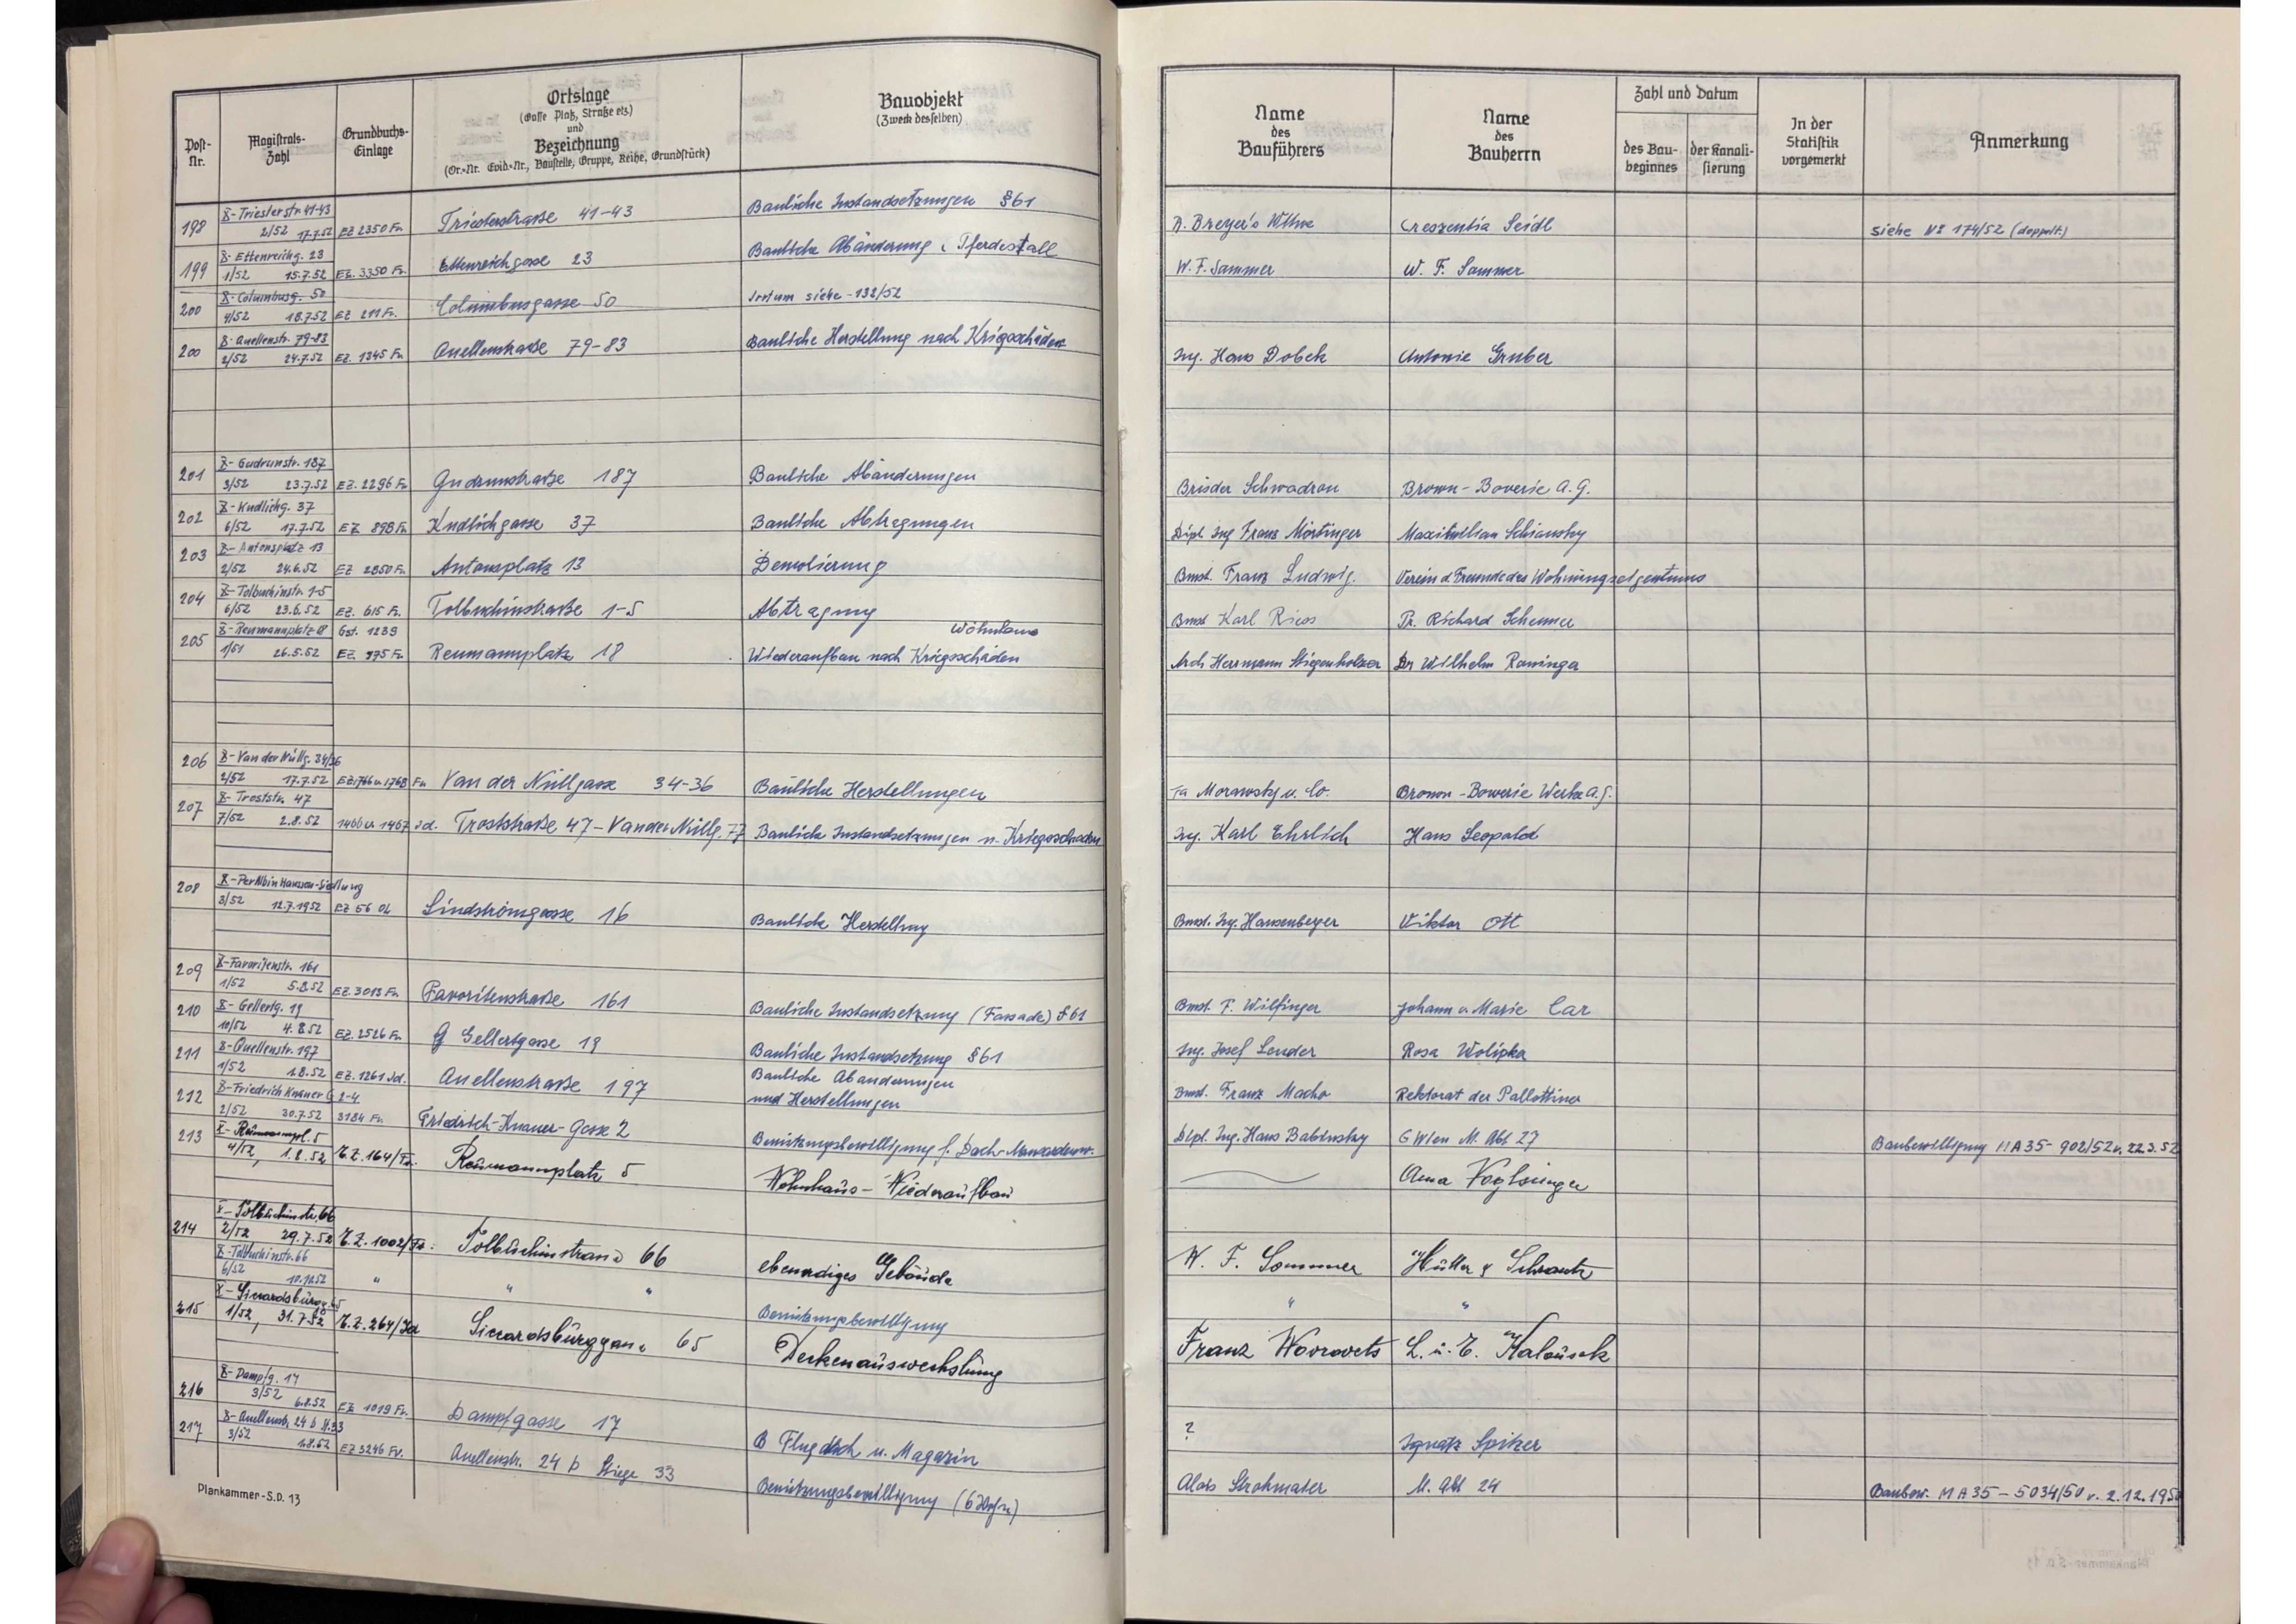 Post-Nr.
Magistrats-Zahl
Grundbuchs-Einlage
Ortslage
(Gasse Platz, Straße etz.)
und
Bezeichnung
(Or.-Nr. Evid.-Nr., Baustelle, Gruppe, Reihe, Grundstück)
Bauobjekt
(Zweck desselben)
Name
des
Bauführers
Name
des
Bauherrn
Zahl und Datum
des Bau-
beginnes
der Kanali-
sierung
In der
Statistik
vorgemerkt
Anmerkung
X-Triesterstr. 41-43
198 2/52 17.7.52 EZ 2350 Fv. Triesterstrasse 41-43 Bauliche Instandsetzungen §61 Creszentia Seidl siehe No 174/52 (doppelt.)
X-Ettenreichg. 23
199 1/52 15.7.52 EZ. 3350 Fv. Ettenreichgasse 23 Bauliche Abänderung, Pferdestall W. F. Sammer W. F. Sammer
X-Columbusg. 50
200 4/52 18.7.52 EZ 211 Fv. Columbusgasse 50 Irrtum siehe -132/52
X-Quellenstr. 79-83
200 2/52 24.7.52 EZ. 1345 Fv. Quellenstraße 79-83 Bauliche Herstellung nach Kriegsschäden Ing. Hans Dobek Antonie Gruber
X-Gudrunstr. 187
201 3/52 23.7.52 EZ. 2296 Fv. Gudrunstraße 187 Bauliche Abänderungen Brüder Schwadron Brown-Boverie A.G.
X-Kudlichg. 37
202 6/52 17.7.52 EZ 898 Fv. Kudlichgasse 37 Bauliche Abtragungen Dipl. Ing Franz Mörtinger Maximilian
X-Antonsplatz 13
203 2/52 24.6.52 EZ 2850 Fv. Antonsplatz 13 Demolierung Bmst. Franz Ludwig. Verein d. Freunde des Wohnungseigentums
X-Tolbuchinstr. 1-5
204 6/52 23.6.52 EZ. 615 Fv. Tolbuchinstraße 1-5 Abtragung Bmst Karl Riess Richard
X-Reumannplatz 18 Gst. 1239 Wohnhaus
205 1/51 26.5.52 EZ. 975 Fv. Reumannplatz 18 Wiederaufbau nach Kriegsschäden Arch Herrmann Stiegenholzer Dr Wilhelm Rominger
X-Van der Nüllg. 34/36
206 2/52 17.7.52 EZ 1766 u. 1768 Fv. Van der Nüllgasse 34-36 Bauliche Herstellungen Fa Morawsky u. Co. Brown-Bowerie Werke A.G.
X-Troststr. 47
207 7/52 2.8.52 1466 u 1467 Jd. Troststraße 47-Van der Nüllg. 77 Bauliche Instandsetzungen n. Kriegsschaden Ing. Karl Ehrlich Hans Leopold
X-Per Albin Hansson-Siedlung
208 3/52 12.7.1952 EZ 56 OL Lindströmgasse 16 Bauliche Herstellung Bmst. Ing. Hansenbeyer Viktor Ott
X-Favoritenstr. 161
209 1/52 5.8.52 EZ. 3013 Fv. Favoritenstraße 161 Bauliche Instandsetzung (Fassade) §61 Bmst. F. Wilfinger Johann u Marie Car
X-Gellertg. 19
210 10/52 4.8.52 EZ. 2526 Fv. Gellertgasse 19 Bauliche Instandsetzung §61 Ing. Josef Lender Rosa Wolipka
X-Quellenstr. 197 Bauliche Abänderungen
211 1/52 1.8.52 EZ. 1261 Jd. Quellenstrasse 197 und Herstellungen Bmst. Franz Macho Rektorat der Pallottiner
X-Friedrich Knauer G 2-4
212 2/52 30.7.52 3184 Fv. Friedrich-Knauer-Gasse 2 Benützungsbewilligung f. Dach-Mansardenw. Dipl. Ing. Hans Babinsky G Wien M. Abt 27 Baubewilligung MA 35-902/52 v. 22.3.52
X-Reumannpl. 5
213 4/52, 1.8.52 E.Z. 164/Fv. Reumannplatz 5 Wohnhaus-Wiederaufbau Anna Voglsinger
X-Tolbuchinstr. 66
214 2/52 29.7.52 E.Z. 1002/Fv. Tolbuchinstrasse 66 ebenerdiges Gebäude W. F. Sommer Hütter & Schrantz
X-Tolbuchinstr. 66
6/52 10.12.52 " " " Benützungsbewilligung " "
X-Siccardsburgg. 65
215 1/52, 31.7.52 E.Z. 264/Jd Siccardsburggasse 65 Deckenauswechslung Franz Worovets L. u. E. Kalousek
X-Dampfg. 17
216 3/52 6.8.52 EZ 1019 Fv. Dampfgasse 17 Flugdach u. Magazin ? Ignatz Spitzer
X-Quellenstr. 24 b St. 33
217 3/52 1.8.52 EZ 3246 Fv. Quellenstr. 24 b Stiege 33 Benützungsbewilligung (6 Wohn) Alois Strohmaier M. Abt 24 Baubew. MA 35-5034/50 v. 2.12.1950
Plankammer-S.D. 13